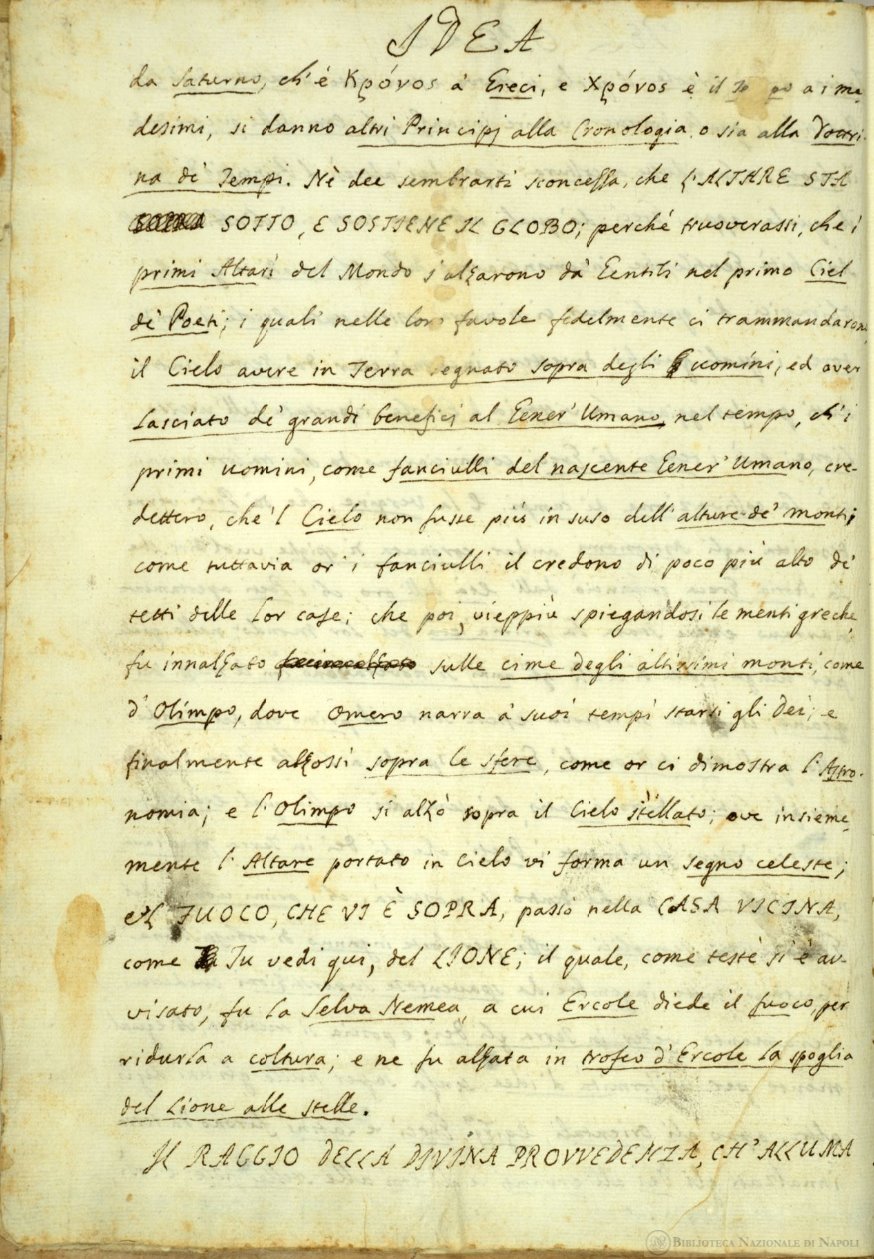 IDEA
da Saturno, ch'è Κρόνος à Greci, e Χρόνος è il a i me-
desimi, si danno altri Principj alla Cronologia, o sia alla Dottri-
na de' Tempi. Nè dee sembrarti sconcezza, che l'ALTARE STA
SOPRA SOTTO, E SOSTIENE IL GLOBO; perchè truoverassi, che i
primi Altari del Mondo s'alzarono da' Gentili nel primo Ciel
de' Poeti; i quali nelle loro favole fedelmente ci trammandarono,
il Cielo avere in Terra regnato sopra degli uomini, ed aver
lasciato de' grandi benefizj al Gener' Umano, nel tempo, ch'i
primi uomini, come fanciulli del nascente Gener' Umano, cre-
dettero, che'l Cielo non fusse più in suso dell'alture de' monti;
come tuttavia or' i fanciulli il credono di poco più alto de'
tetti delle lor case; che poi, vieppiù spiegandosi le menti greche,
fu innalzato sulle cime degli altissimi monti, come
d'Olimpo, dove Omero narra à suoi tempi starsi gli Dei; e
finalmente alzossi sopra le sfere, come or ci dimostra l'Astro-
nomia; e l'Olimpo si alzò sopra il Cielo stellato; ove insieme-
mente l'Altare portato in Cielo vi forma un segno celeste;
e'l FUOCO, CHE VI È SOPRA, passò nella CASA VICINA,
come Tu vedi qui, del LIONE; il quale, come testè si è av-
visato, fu la Selva Nemea, a cui Ercole diede il fuoco, per
ridurla a coltura; e ne fu alzata in trofeo d'Ercole la spoglia
del Lione alle stelle.
IL RAGGIO DELLA DIVINA PROVVEDENZA, CH'ALLUMA
BIBLIOTECA NAZIONALE DI NAPOLI